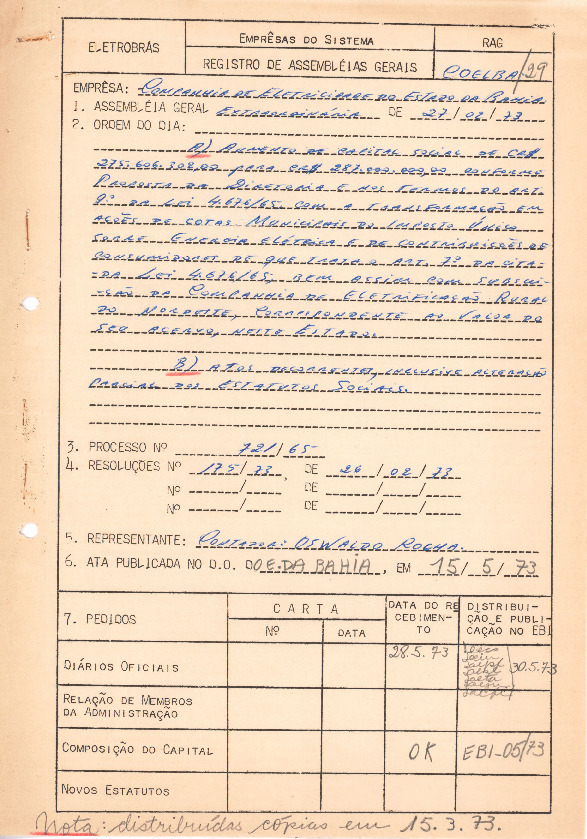 ELETROBRÁS
EMPRÊSAS DO SISTEMA
RAG
REGISTRO DE ASSEMBLÉIAS GERAIS
COELBA/29
EMPRÊSA: COMPANHIA DE ELETRICIDADE DO ESTADO DA BAHIA
1. ASSEMBLÉIA GERAL EXTRAORDINÁRIA DE 27/02/73
2. ORDEM DO DIA:
A) AUMENTO DE CAPITAL SOCIAL DE CR$
275.606.308,00 PARA CR$ 287.000.000,00 CONFORME
PROPOSTA DA DIRETORIA E NOS TERMOS DO ART.
9º DA LEI 4.676/65, COM A TRANSFORMAÇÃO EM
AÇÕES DE COTAS MUNICIPAIS DO IMPOSTO ÚNICO
SOBRE ENERGIA ELÉTRICA E DE CONTRIBUIÇÕES DE
CONSUMIDORES DE QUE TRATA O ART. 7º DA CITA-
DA LEI 4.676/65, BEM ASSIM COM SUBSCRI-
ÇÃO DA COMPANHIA DE ELETRIFICAÇÃO RURAL
DO NORDESTE, CORRESPONDENTE AO VALOR DO
SEU ACERVO, NESTE ESTADO.
B) ATOS DECORRENTES, INCLUSIVE ALTERAÇÃO
PARCIAL DOS ESTATUTOS SOCIAIS.
3. PROCESSO Nº 721/65
4. RESOLUÇÕES Nº 175/73, DE 26/02/73
Nº / DE / /
Nº / DE / /
5. REPRESENTANTE: CONTADOR: OSWALDO ROCHA.
6. ATA PUBLICADA NO D.O. DO E. DA BAHIA, EM 15/5/73
7. PEDIDOS
CARTA
Nº
DATA
DATA DO RE
CEBIMEN-
TO
DISTRIBUI-
ÇÃO E PUBLI-
CAÇÃO NO EBI
DIÁRIOS OFICIAIS
28.5.73
30.5.73
RELAÇÃO DE MEMBROS
DA ADMINISTRAÇÃO
COMPOSIÇÃO DO CAPITAL
OK
EBI-05/73
NOVOS ESTATUTOS
Nota: distribuídas cópias em 15.3.73.